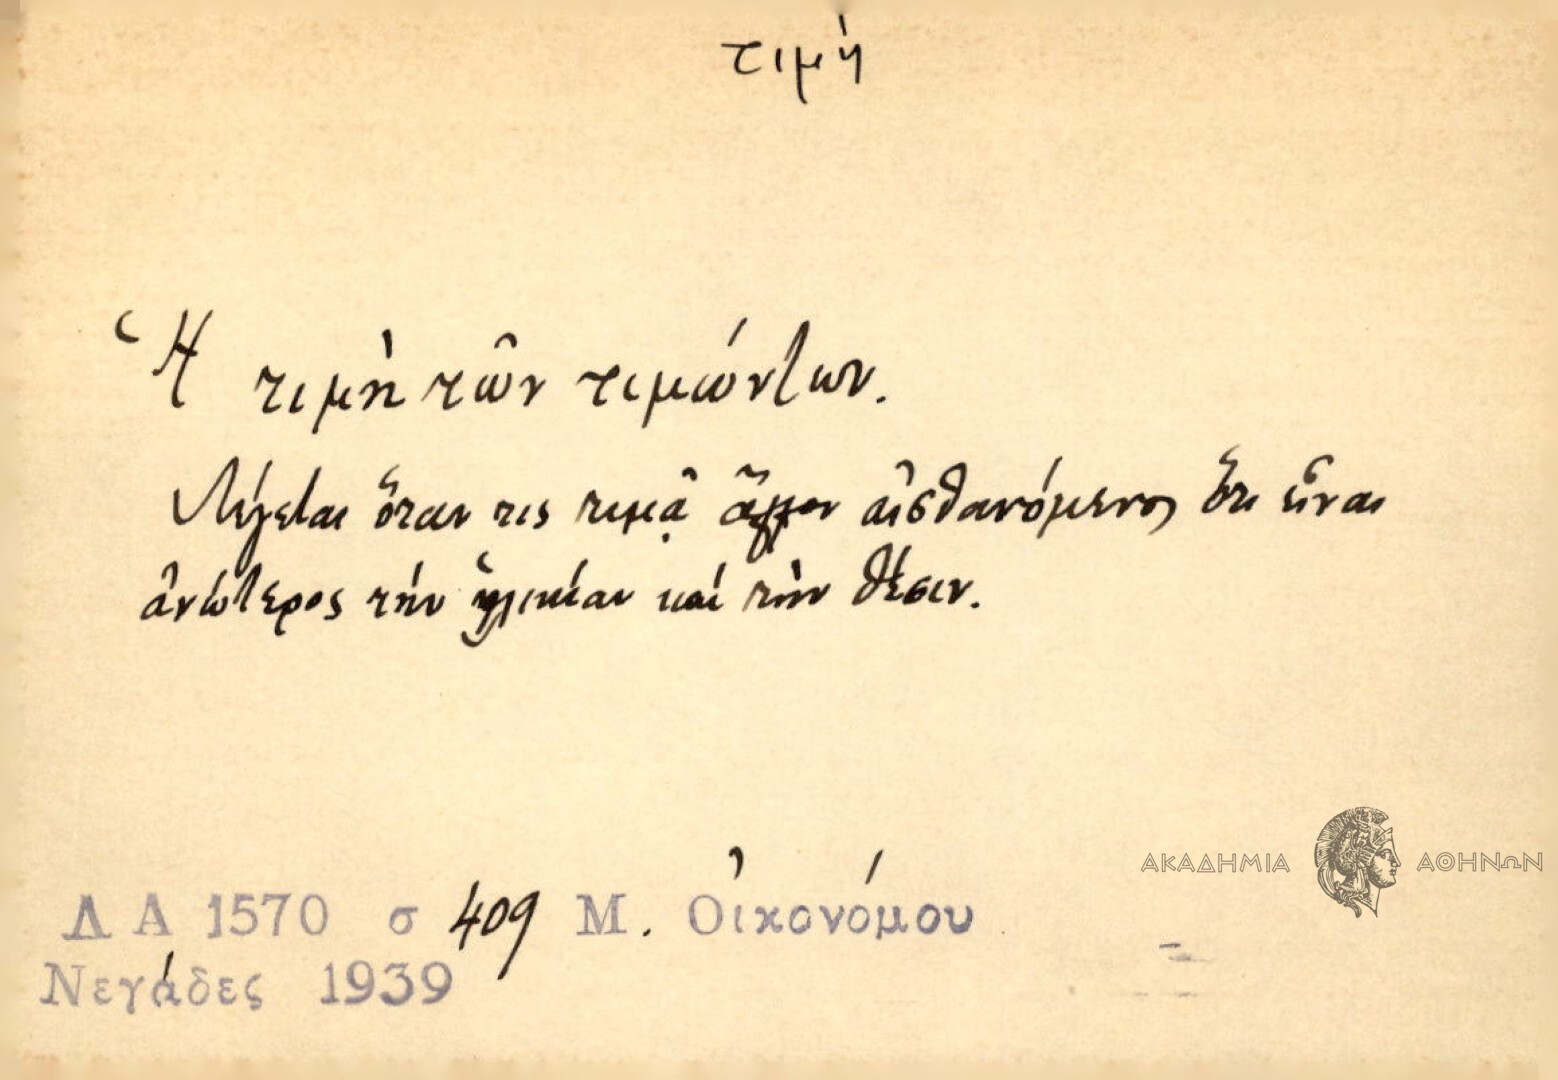 τιμή
Ἡ τιμὴ τῶν τιμώντων.
Λέγεται ὅταν τις τιμᾷ ἄλλον αἰσθανόμενος ὅτι εἶναι
ἀνώτερος τήν ἡλικίαν καί τὴν θέσιν.
ΑΚΑΔΗΜΙΑ ΑΘΗΝΩΝ
Λ Α 1570 σ 409 Μ. Οἰκονόμου
Νεγάδες 1939